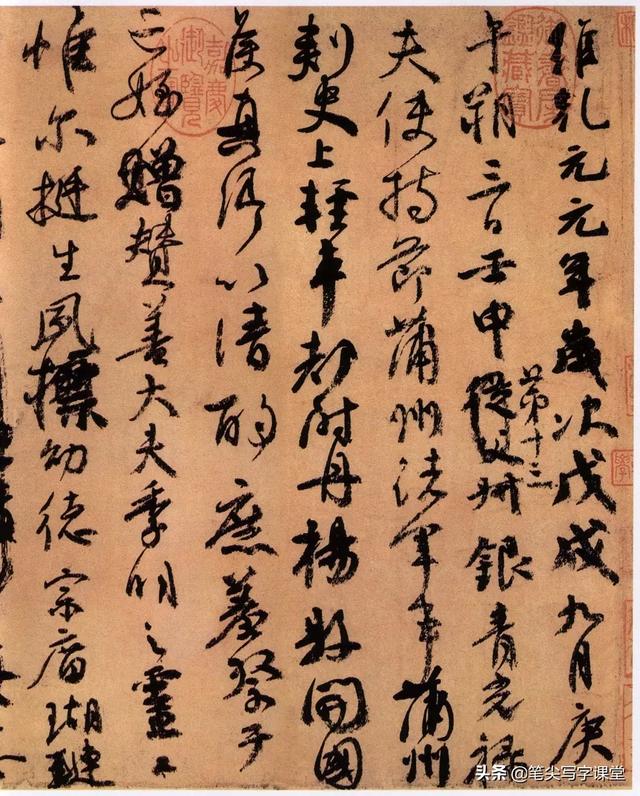 維乾元元年歲次戊戌九月庚
午朔三日壬申第十三從父叔銀青光祿
夫使持節蒲州諸軍事蒲州
刺史上輕車都尉丹楊縣開國
侯真卿以清酌庶羞祭于
亡姪贈贊善大夫季明之靈曰
惟爾挺生夙標幼德宗廟瑚璉
嘉慶御覽之寶
头条 @笔尖写字课堂